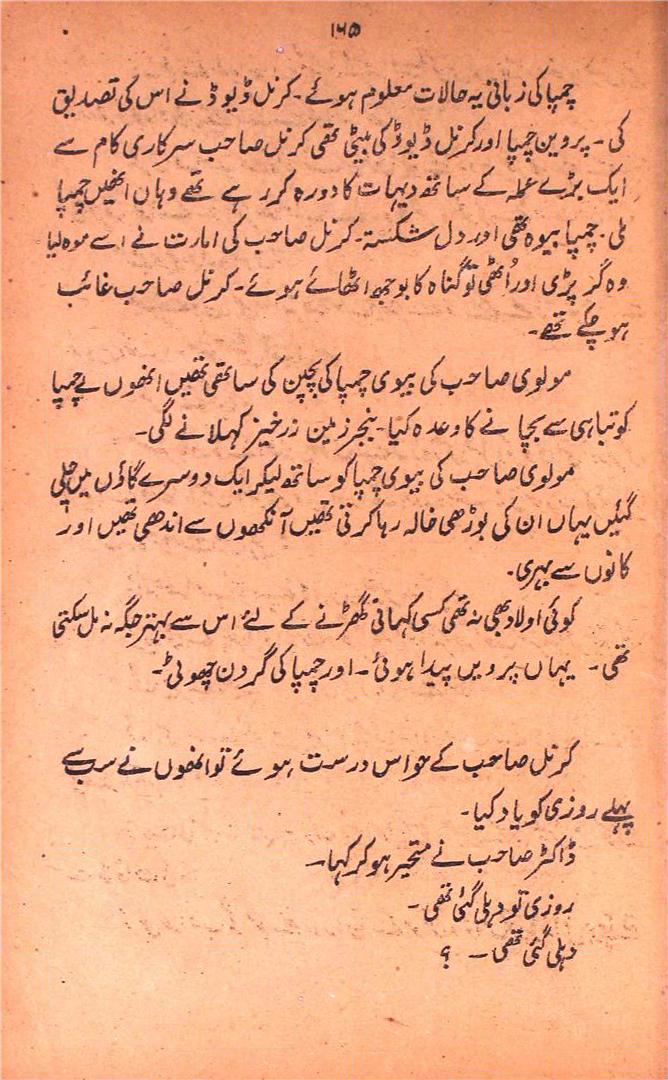 ۱۶۵
چمپا کی زبانی یہ حالات معلوم ہوئے۔ کرنل ڈیوڈ نے اس کی تصدیق
کی۔ پروین چمپا اور کرنل ڈیوڈ کی بیٹی تھی کرنل صاحب سرکاری کام سے
ایک بڑے عملہ کے ساتھ دیہات کا دورہ کر رہے تھے وہاں انھیں چمپا
ملی۔ چمپا بیوہ تھی اور دل شکستہ۔ کرنل صاحب کی امارت نے اسے موہ لیا
وہ گر پڑی اور اُٹھی تو گناہ کا بوجھ اٹھائے ہوئے۔ کرنل صاحب غائب
ہو چکے تھے۔
مولوی صاحب کی بیوی چمپا کی بچپن کی ساتھی تھیں انھوں نے چمپا
کو تباہی سے بچانے کا وعدہ کیا۔ بنجر زمین زرخیز کہلانے لگی۔
مولوی صاحب کی بیوی چمپا کو ساتھ لیکر ایک دوسرے گاؤں میں چلی
گئیں یہاں ان کی بوڑھی خالہ رہا کرتی تھیں آنکھوں سے اندھی تھیں اور
کانوں سے بہری۔
کوئی اولاد بھی نہ تھی کسی کہانی گھڑنے کے لئے اس سے بہتر جگہ نہ مل سکتی
تھی۔ یہاں پروین پیدا ہوئی۔ اور چمپا کی گردن چھوٹی۔
کرنل صاحب کے حواس درست ہوئے تو انھوں نے سب سے
پہلے روزی کو یاد کیا۔
ڈاکٹر صاحب نے متحیر ہو کر کہا۔
روزی تو دہلی گئی تھی۔
دہلی گئی تھی ۔ ؟